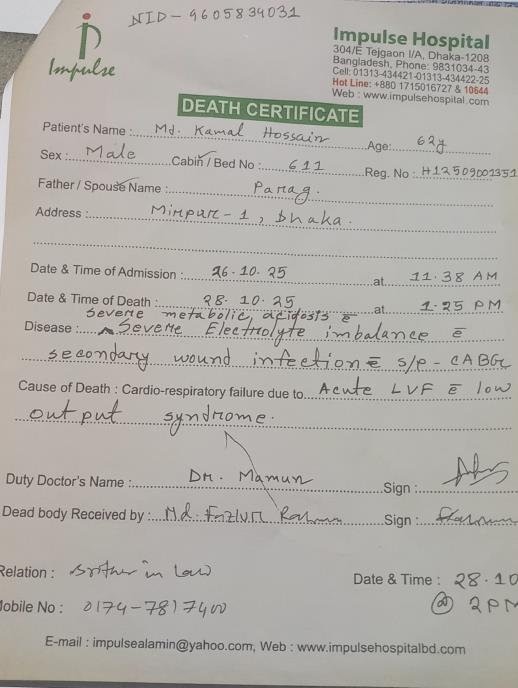 NID - 9605834031
Impulse
Impulse Hospital
304/E Tejgaon I/A, Dhaka-1208
Bangladesh, Phone: 9831034-43
Cell: 01313-434421-01313-434422-25
Hot Line: +880 1715016727 & 10644
Web : www.impulsehospital.com
DEATH CERTIFICATE
Patient's Name : Md. Kamal Hossain Age: 62y
Sex : Male Cabin / Bed No : 611 Reg. No : H12509001351
Father / Spouse Name : Parag.
Address : Mirpur - 1, Dhaka.
Date & Time of Admission : 26.10.25 at 11.38 AM
Date & Time of Death : 28.10.25 at 1.25 PM
severe metabolic acidosis c̄
Disease : Severe Electrolyte imbalance c̄
secondary wound infection c̄ s/p - CABG
Cause of Death : Cardio-respiratory failure due to Acute LVF c̄ low
output syndrome.
Duty Doctor's Name : Dr. Mamun Sign :
Dead body Received by : Md. Fazlur Rahman Sign :
Relation : brother in law Date & Time : 28.10
Mobile No : 0174-7817400 @ 2PM
E-mail : impulsealamin@yahoo.com, Web : www.impulsehospitalbd.com